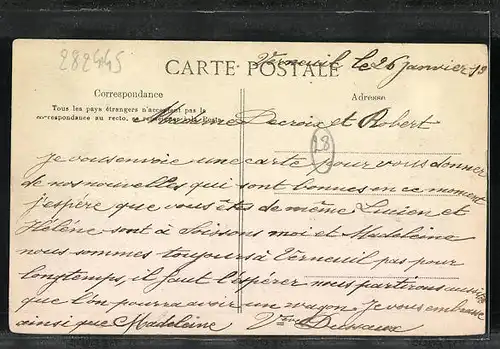 282445
Verneuil le 26 Janvier 19
CARTE POSTALE
Correspondance
Adresse
Tous les pays étrangers n'acceptent pas la
correspondance au recto.
Madame Decroix et Robert
28
Je vous envoie une carte pour vous donner
de nos nouvelles qui sont bonnes en ce moment
j'espère que vous êtes de même Lucien et
Hélène sont à Soissons moi et Madeleine
nous sommes toujours à Verneuil pas pour
longtemps, il faut l'espérer nous partirons aussitôt
que l'on pourra avoir un wagon. Je vous embrasse
ainsi que Madeleine Vve Dussaux